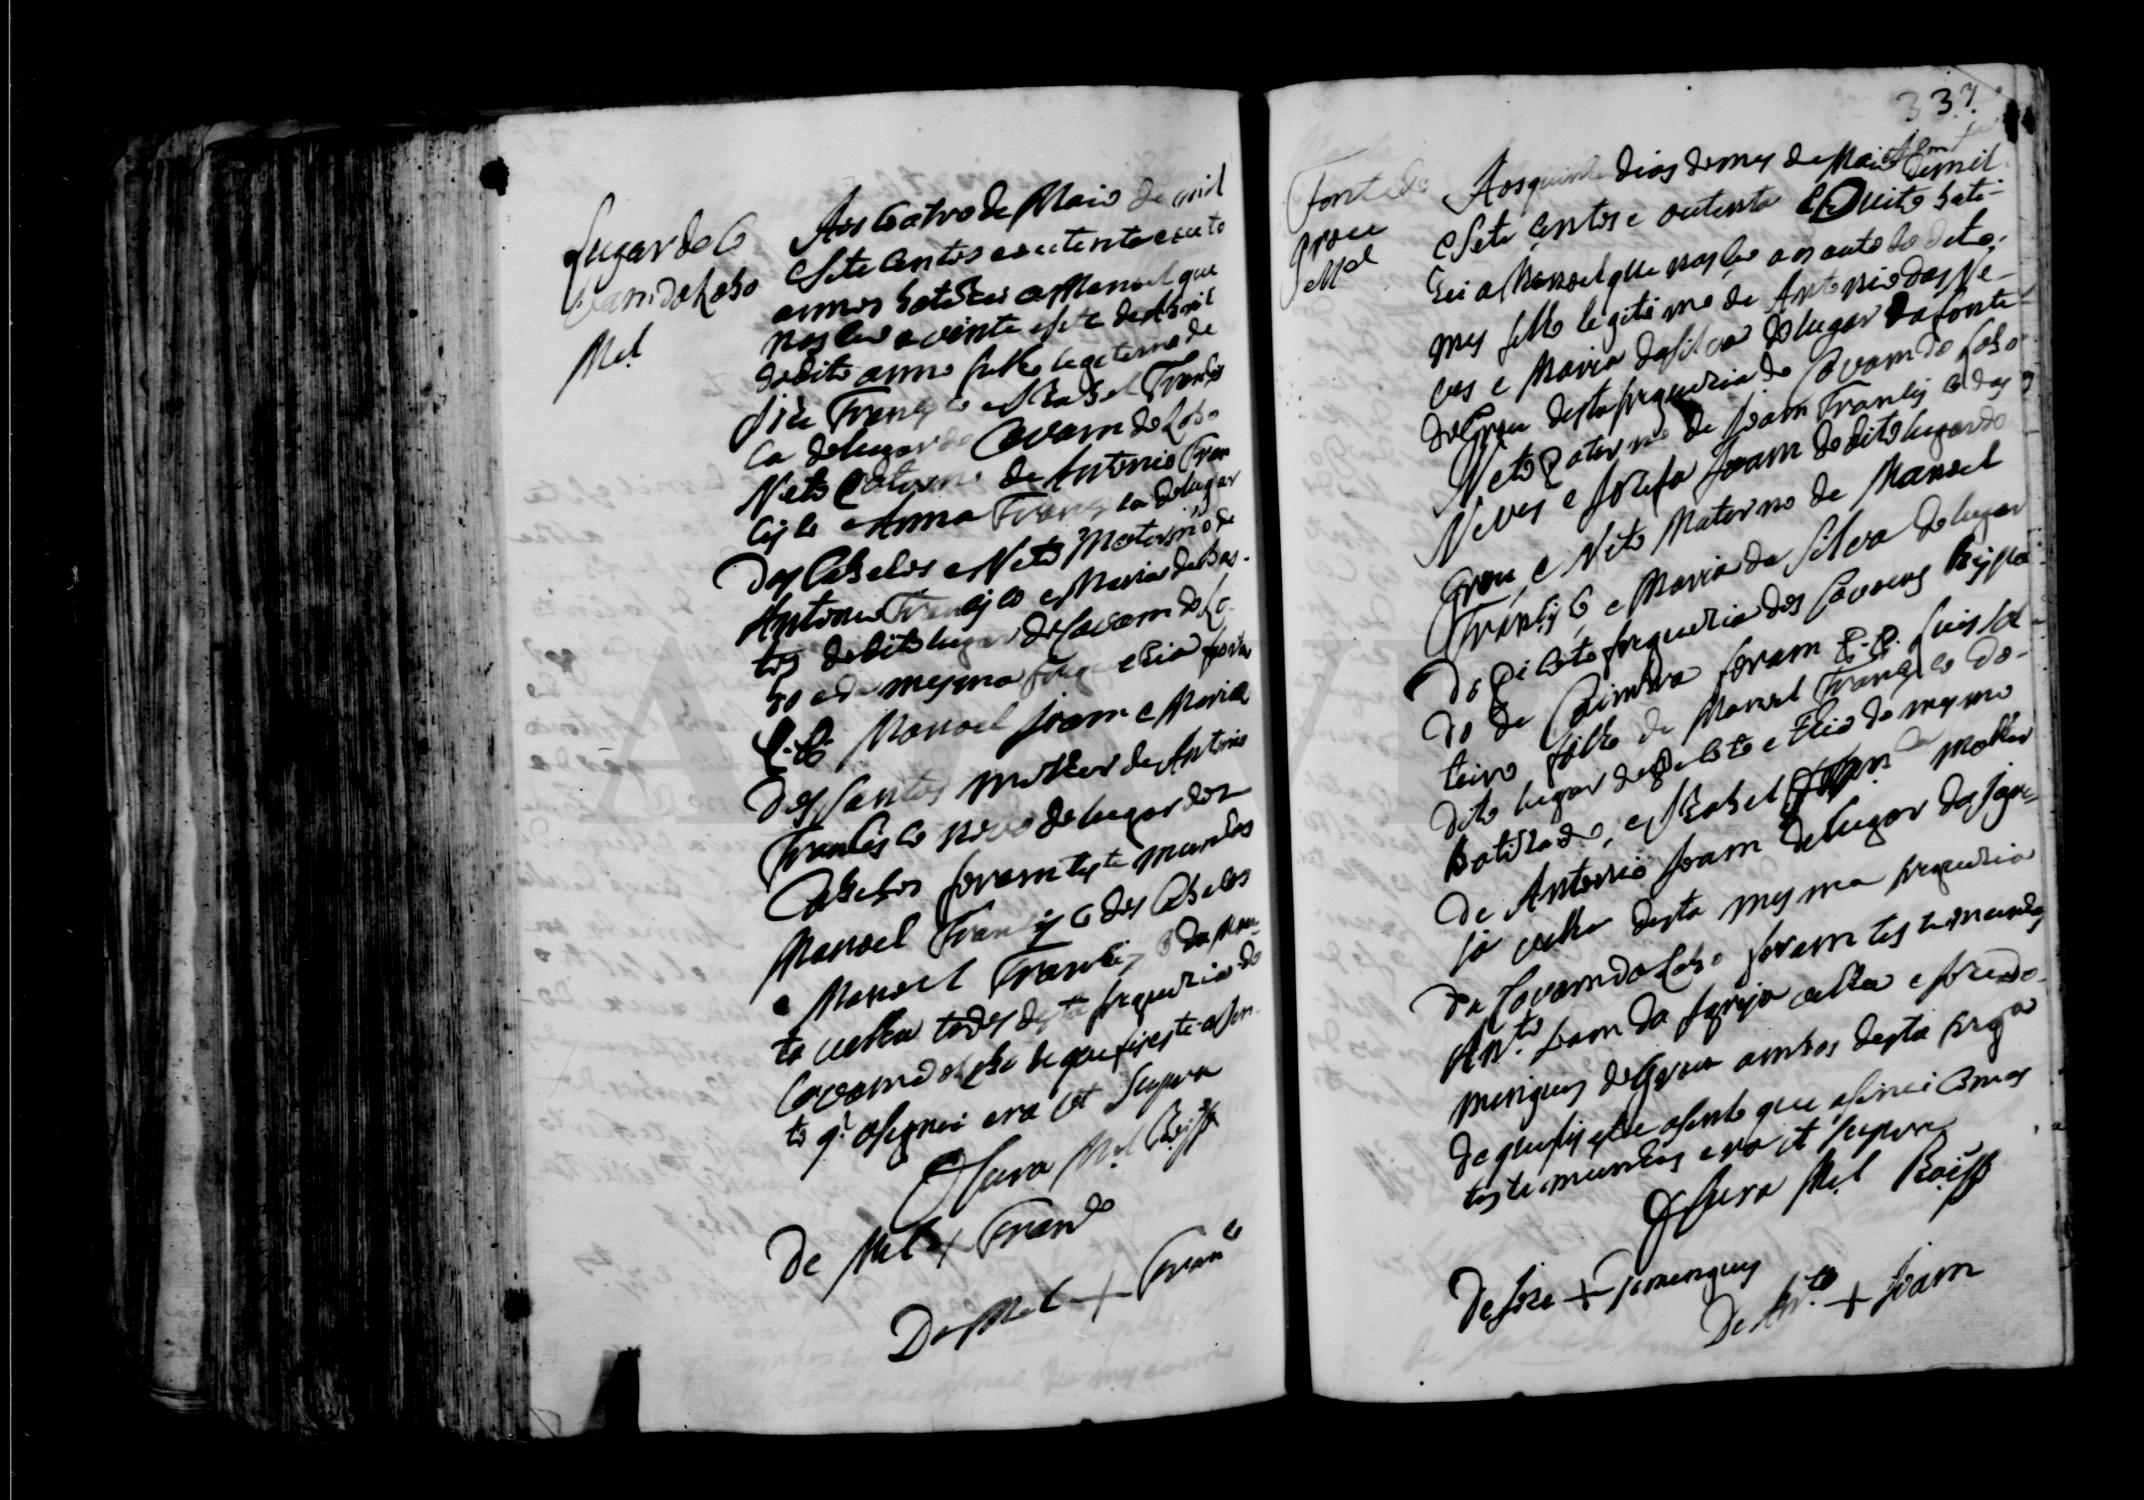 Lugar do Co
vam do Lobo
Mel
Aos coatro de Maio de mil
e sete centos e outenta e outo
annos batizei a Manoel que
nasceo a vinte e sete de Abril
do dito anno filho legetimo de
Joze Francisco e Izabel Francis
ca do lugar do Covam do Lobo
Neto Paterno de Antonio Fran
cisco e Anna Francisca do lugar
dos Cabelos e Neto Materno de
Antonio Francisco e Maria de Bas-
tos do dito lugar do Covam do Lo-
bo e da mesma freguezia foram
P.P. Manoel Joam e Maria
dos Santos molher de Antonio
Francisco novo do lugar dos
Cabelos foram teste munhas
Manoel Francisco dos Cabelos
e Manoel Francisco da
ta velha todos desta freguezia do
Covam do Lobo de que fis este asen-
to q. asignei era ut supra
O Cura Mel
De Mel + Franco
De Mel + Franco
337
Fonte do
Grou
Mel
Aos quinze dias do mes de Maio de mil
e sete centos e outenta e outo bati-
zei a Manoel que nasceo aos outo do dito
mes filho legitimo de Antonio das Ne-
ves e Maria da Silva do lugar da fonte
do Grou desta freguezia do Covam do Lobo
Neto Paterno de Joam Francisco das
Neves e Jozefa Joam do dito lugar do
Grou, e Neto Materno de Manoel
Francisco e Maria da Silva do lugar
do freguezia dos Covoens Bispa
do de Coimbra foram P.P. Luis
teiro filho de Manoel Francisco do
dito lugar do e Tio do mesmo
Batizado, e Izabel molher
de Antonio Joam do lugar da Igre-
ja velha desta mesma freguezia
do Covam do Lobo foram testemunhas
An.to Joam da Igreja velha e Joze Do-
mingues do Grou ambos desta freg.a
de que fis este asento que asinei com as
teste munhas era ut supra
O Cura Mel
De Joze + Domingues
De An.to + Joam